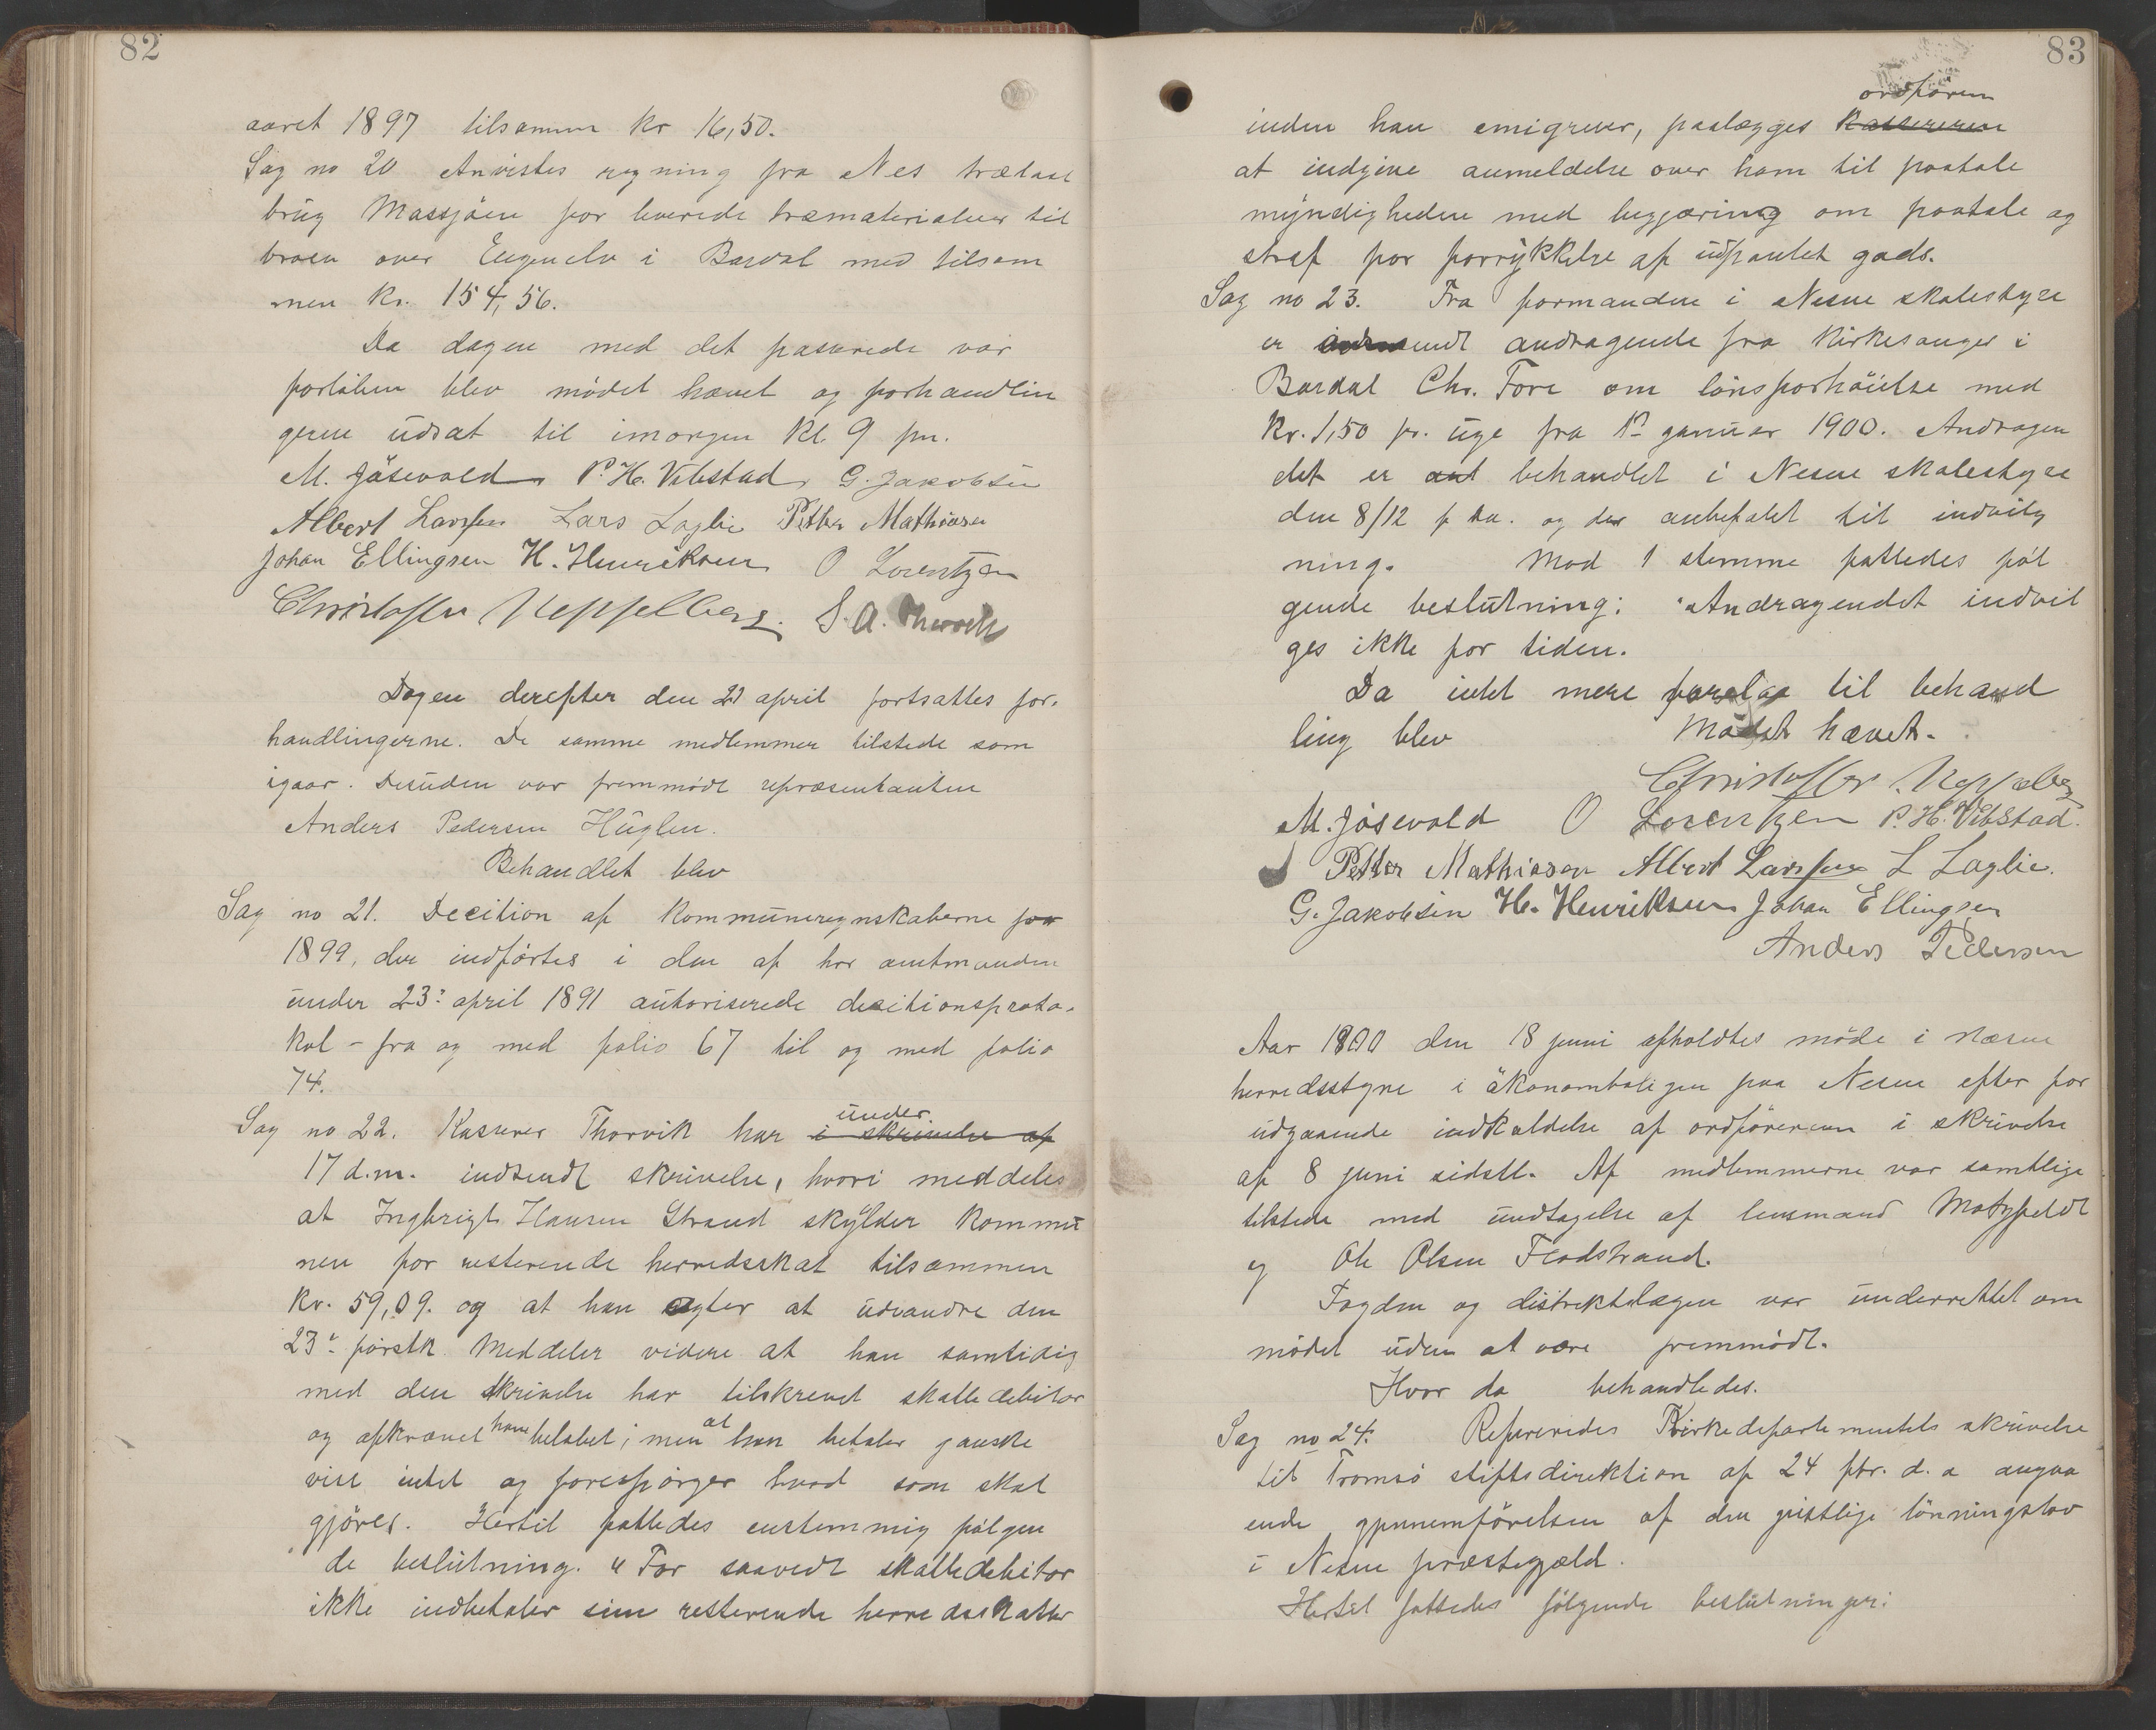 82
aaret 1897 tilsammen kr 16,50.
Sag no 20 Anvistes regning fra Nes trælast
brug Mossjøen for leverede træmaterialier til
broen over Engenelv i Bardal med tilsam
men kr. 154,56.
Da dagen med det passerede var
forløben blev mødet hævet og forhandlin
gerne udsat til imorgen kl. 9 fm.
M. Jösevold P. H. Vebstad G. Jakobsen
Albert Larssen Lars Laglie Petter Mathiasen
Johan Ellingsen H. Henriksen O Lorentzen
Christoffer Neppelberg. S. A.
Dagen derefter den 21 april fortsattes for-
handlingerne. De samme medlemmer tilstede som
igaar. Desuden var fremmødt repræsentanten
Anders Pedersen Huglen.
Behandlet blev
Sag no 21. Decition af kommuneregnskaberne for
1899, der indførtes i den af hr amtmanden
under 23: april 1891 autoriserede decitionsproto-
kol - fra og med folio 67 til og med folio
74.
Sag no 22. Kasserer Thorvik har i skrivelse af under
17 d.m. indsendt skrivelse, hvori meddeles
at Ingbrigt Hansen Strand skylder kommu
nen for resterende herredsskat tilsammen
kr. 59,09. og at han agter at udvandre den
23: førstk. Meddeler videre at han samtidig
med den skrivelse har tilskrevet skattedebitor
og afkrævet ham beløbet; men at han betaler ganske
vist intet og forespørger hvad som skal
gjøres. Hertil fattedes enstemmig følgen
de beslutning. "For saavedt skattedebitor
ikke indbetaler sine resterende herredsskatter
83
inden han emigrerer, paalægges kassereren ordføreren
at indgive anmeldelse over ham til paatale
myndigheden med begjæring om paatale og
straf for forrykkelse af udpantet gods.
Sag no 23. Fra formanden i Nesne skolestyre
er indsendt andragende fra kirkesanger i
Bardal Chr. Fore om lønsforhøielse med
kr. 1,50 pr. uge fra 1ste januar 1900. Andragen
det er behandlet i Nesne skolestyre
den 8/12 f. aa. og der anbefalet til indvilg
ning. Mod 1 stemme fattedes føl
gende beslutning: "Andragendet indvil
ges ikke for tiden.
Da intet mere forelaa til behand
ling blev Mødet hævet.
Christoffer Neppelberg
M. Jösevold O Lorentzen P. H. Vebstad.
Petter Mathiasen Albert Larssen L Laglie.
G. Jakobsen H. Henriksen Johan Ellingsen
Anders Pedersen
Aar 1900 den 18 juni afholdtes møde i Næsne
herredsstyre i økonomboligen paa Nesne efter for
udgaaende indkaldelse af ordføreren i skrivelse
af 8 juni sidstl. Af medlemmerne var samtlige
tilstede med undtagelse af lensmand Motzfeldt
og Ole Olsen Flodstrand.
Fogden og distriktslægen var underrettet om
mødet uden at være fremmødt.
Hvor da behandledes.
Sag no 24. Refereredes Kirkedepartementets skrivelse
til Tromsø stiftsdirektion af 24 fbr. d. a angaa
ende gjennemførelsen af den geistlige lønningslov
i Nesne præstegjæld.
Hertil fattedes følgende beslutninger: